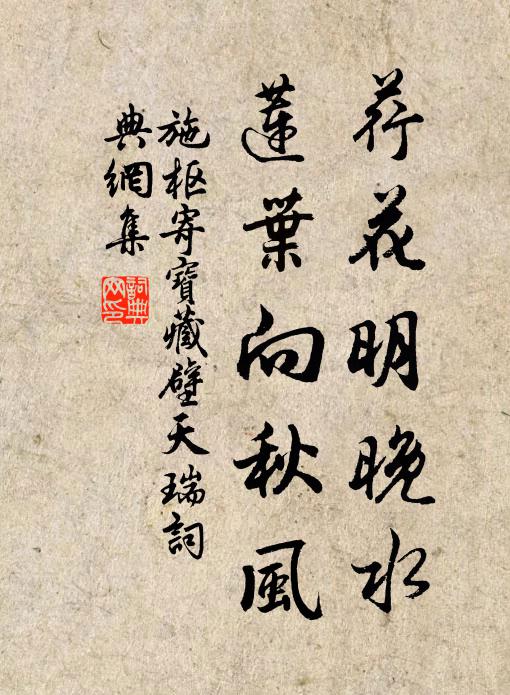 荷花明晚水
蓮葉向秋風
施枢寄寶藏壁天瑞詞
典網集
詞典網印